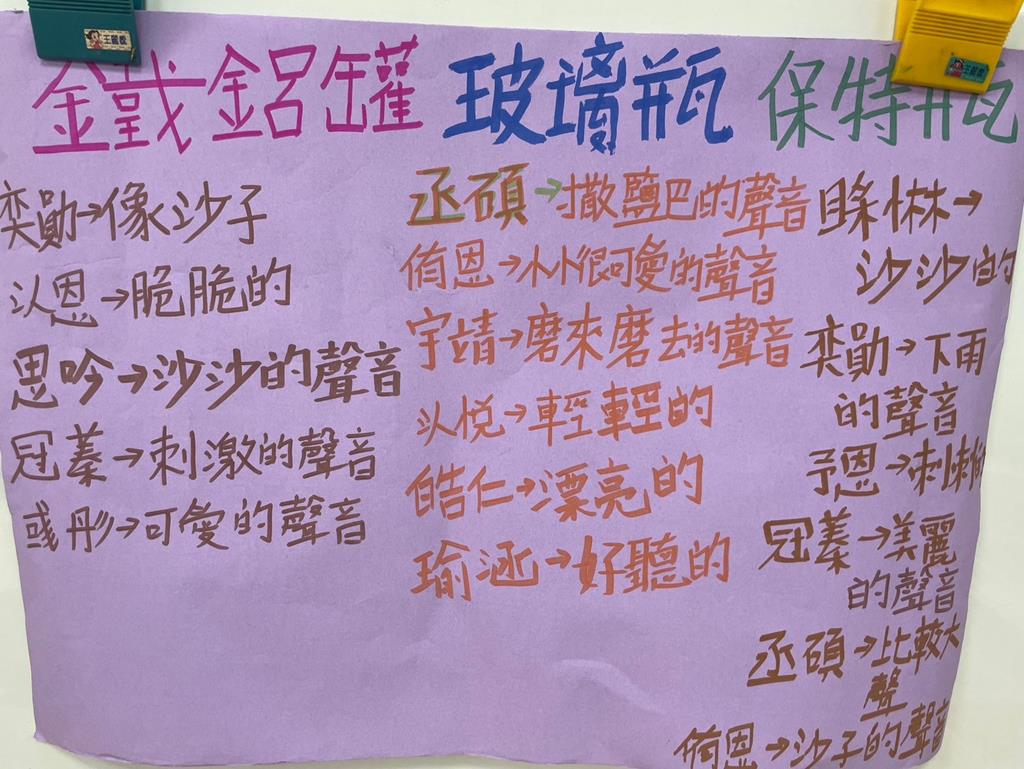 鐵鋁罐
奕勛→像沙子
以恩→脆脆的
思吟→沙沙的聲音
冠蓁→刺激的聲音
彧彤→可愛的聲音
玻璃瓶
丞碩→撒鹽巴的聲音
侑恩→小小很可愛的聲音
宇靖→磨來磨去的聲音
以悅→輕輕的
皓仁→漂亮的
瑜涵→好聽的
保特瓶
→
沙沙的
奕勛→下雨
的聲音
予恩→刺刺的
冠蓁→美麗
的聲音
丞碩→比較大
聲
侑恩→沙子的聲音